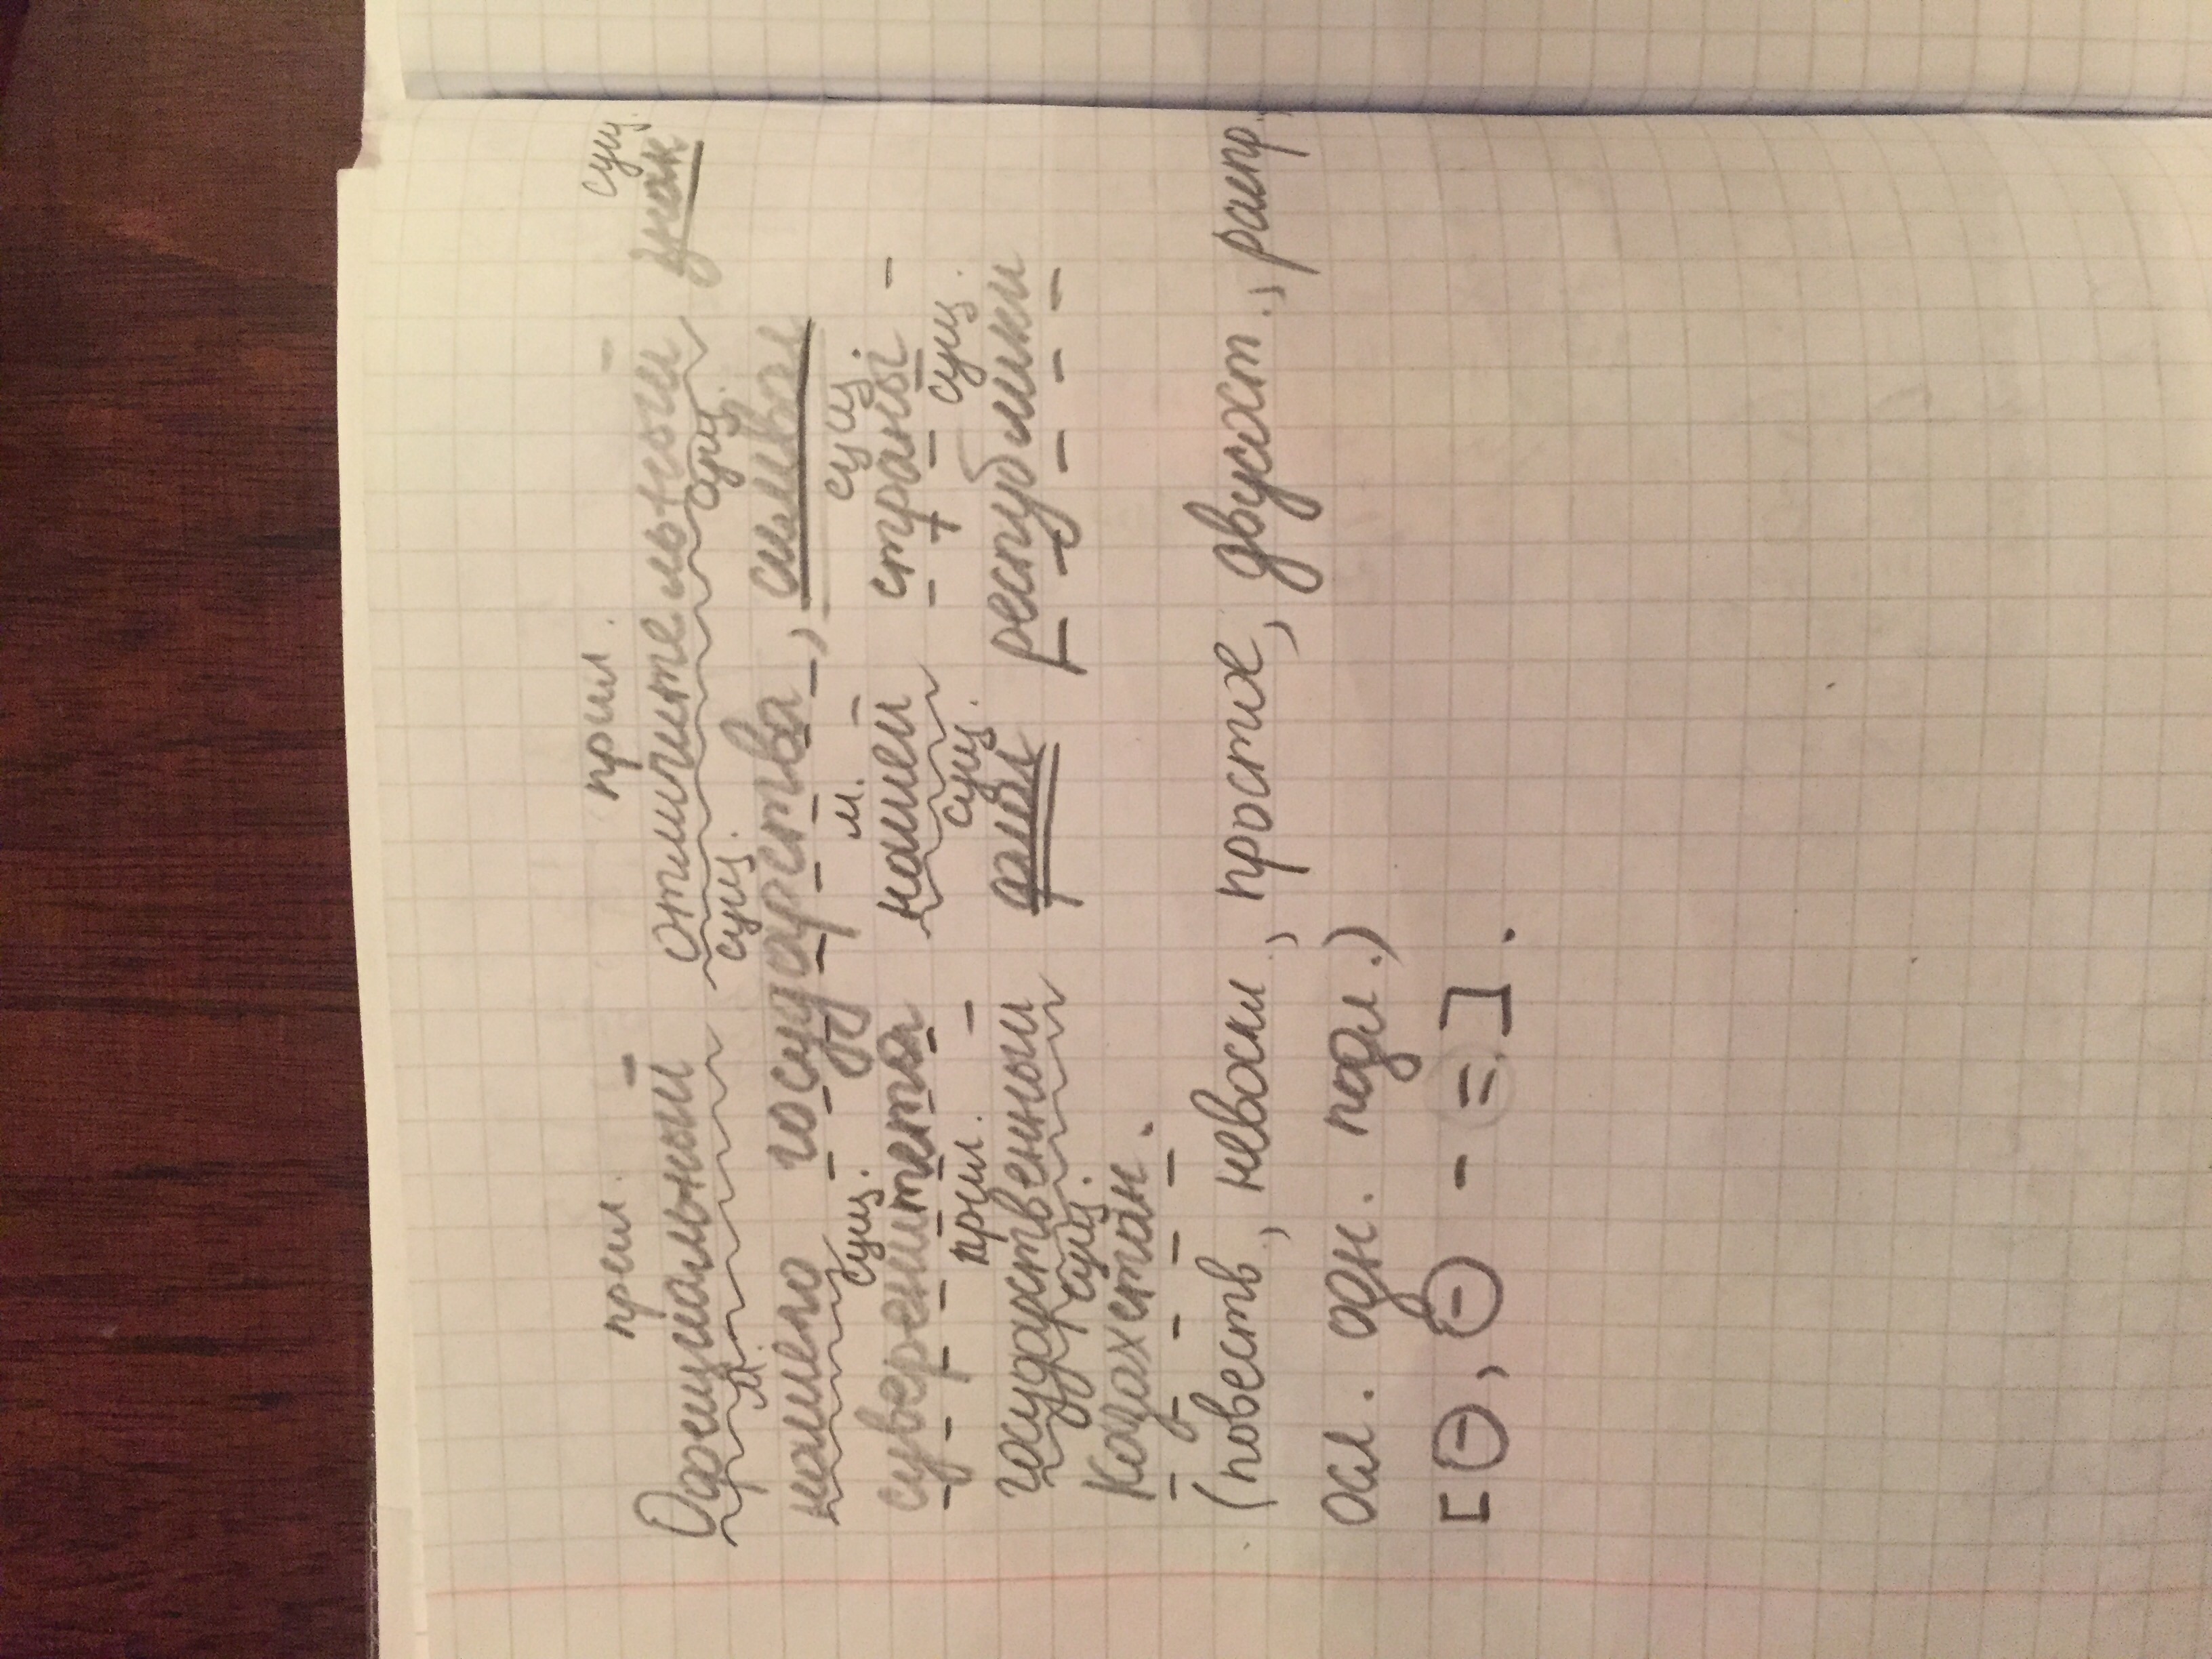 прил. прил. сущ.
Официальный отличительный знак
м. сущ. сущ.
нашего государства, символ
сущ. м. сущ
суверенитета нашей страны -
прил. сущ. сущ.
государственный флаг республики
сущ.
Казахстан.
(повеств, невоскл, простое, двусост., распр.,
осл. одн. подл.)
[⊖, ⊖ - =].